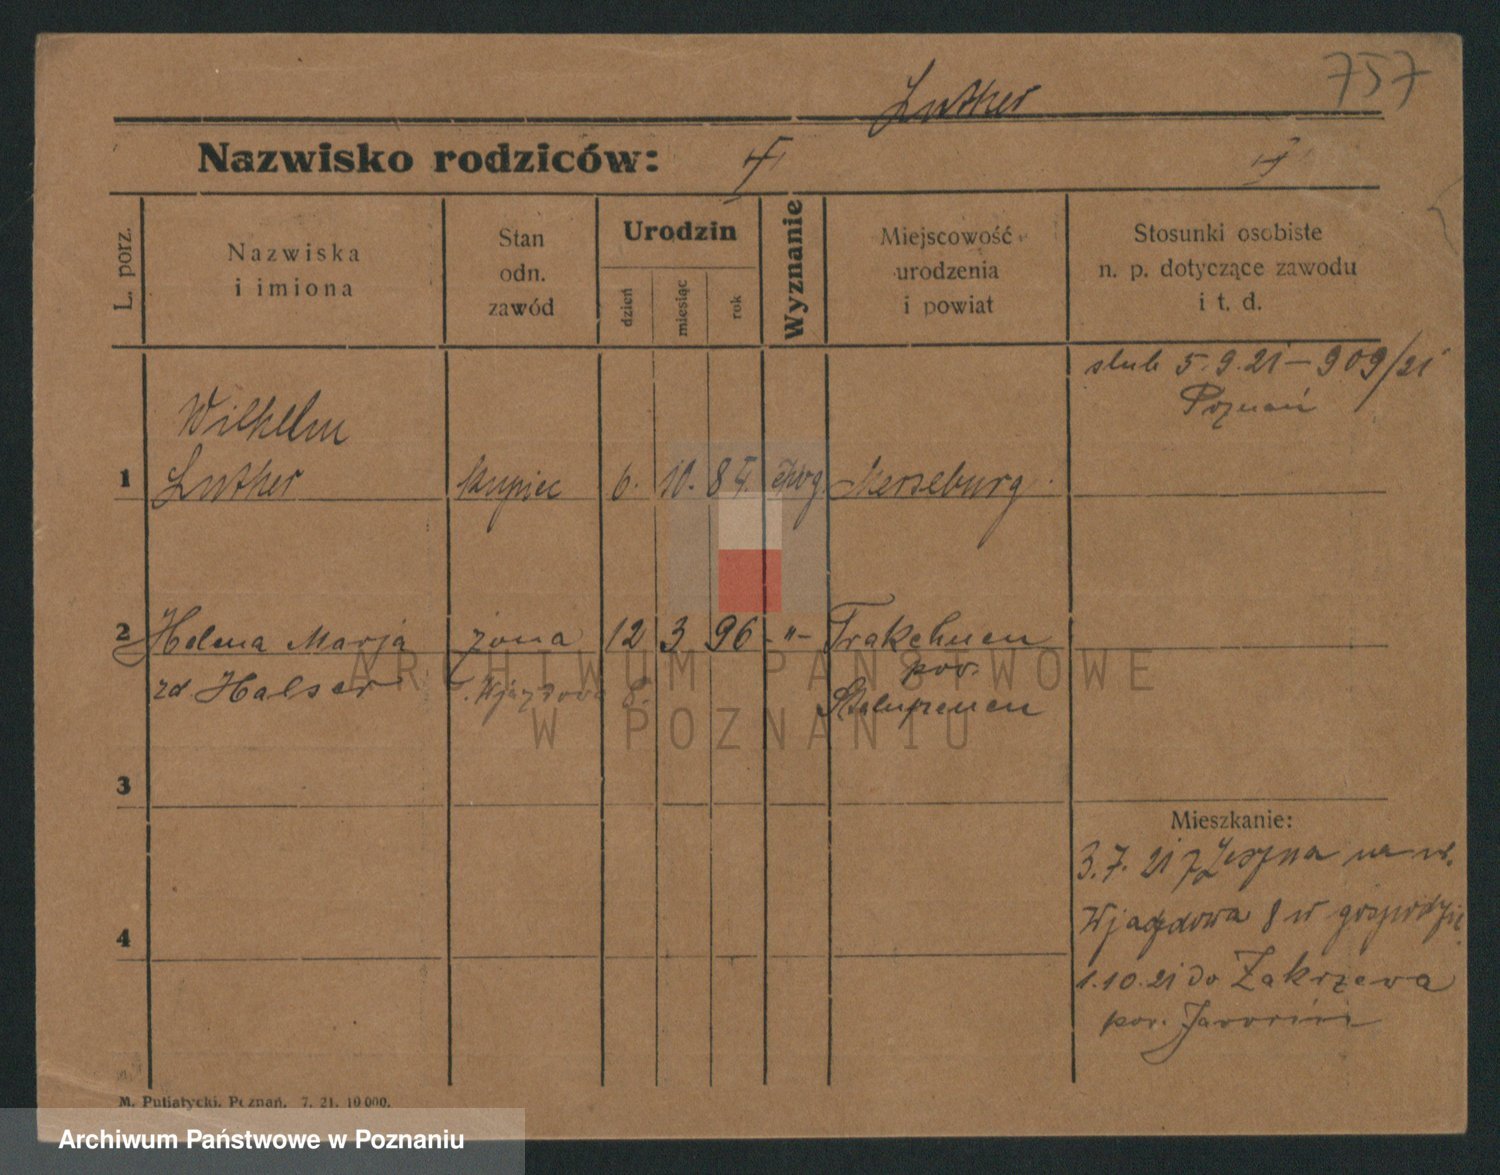 757
Luther
Nazwisko rodziców:
L. porz.
Nazwiska i imiona
Stan odn. zawód
Urodzin
dzień
miesiąc
rok
Wyznanie
Miejscowość urodzenia i powiat
Stosunki osobiste n. p. dotyczące zawodu i t. d.
ślub 5.9.21 – 909/21
Poznań
Wilhelm
1 Luther kupiec 6. 10. 87. Merseburg
2 Helena Marja żona 12 3 96 -"- Trakehnen
pow.
zd Halser Wjazdowa 8.
Stalupenen
3
Mieszkanie:
3.7.21 z Leszna na
Wjazdowa 8 w
4
1.10.21 do Zakrzewa
pow. Jarocin
M. Putiatycki, Poznań. 7. 21. 10 000.
ARCHIWUM PAŃSTWOWE
W POZNANIU
Archiwum Państwowe w Poznaniu